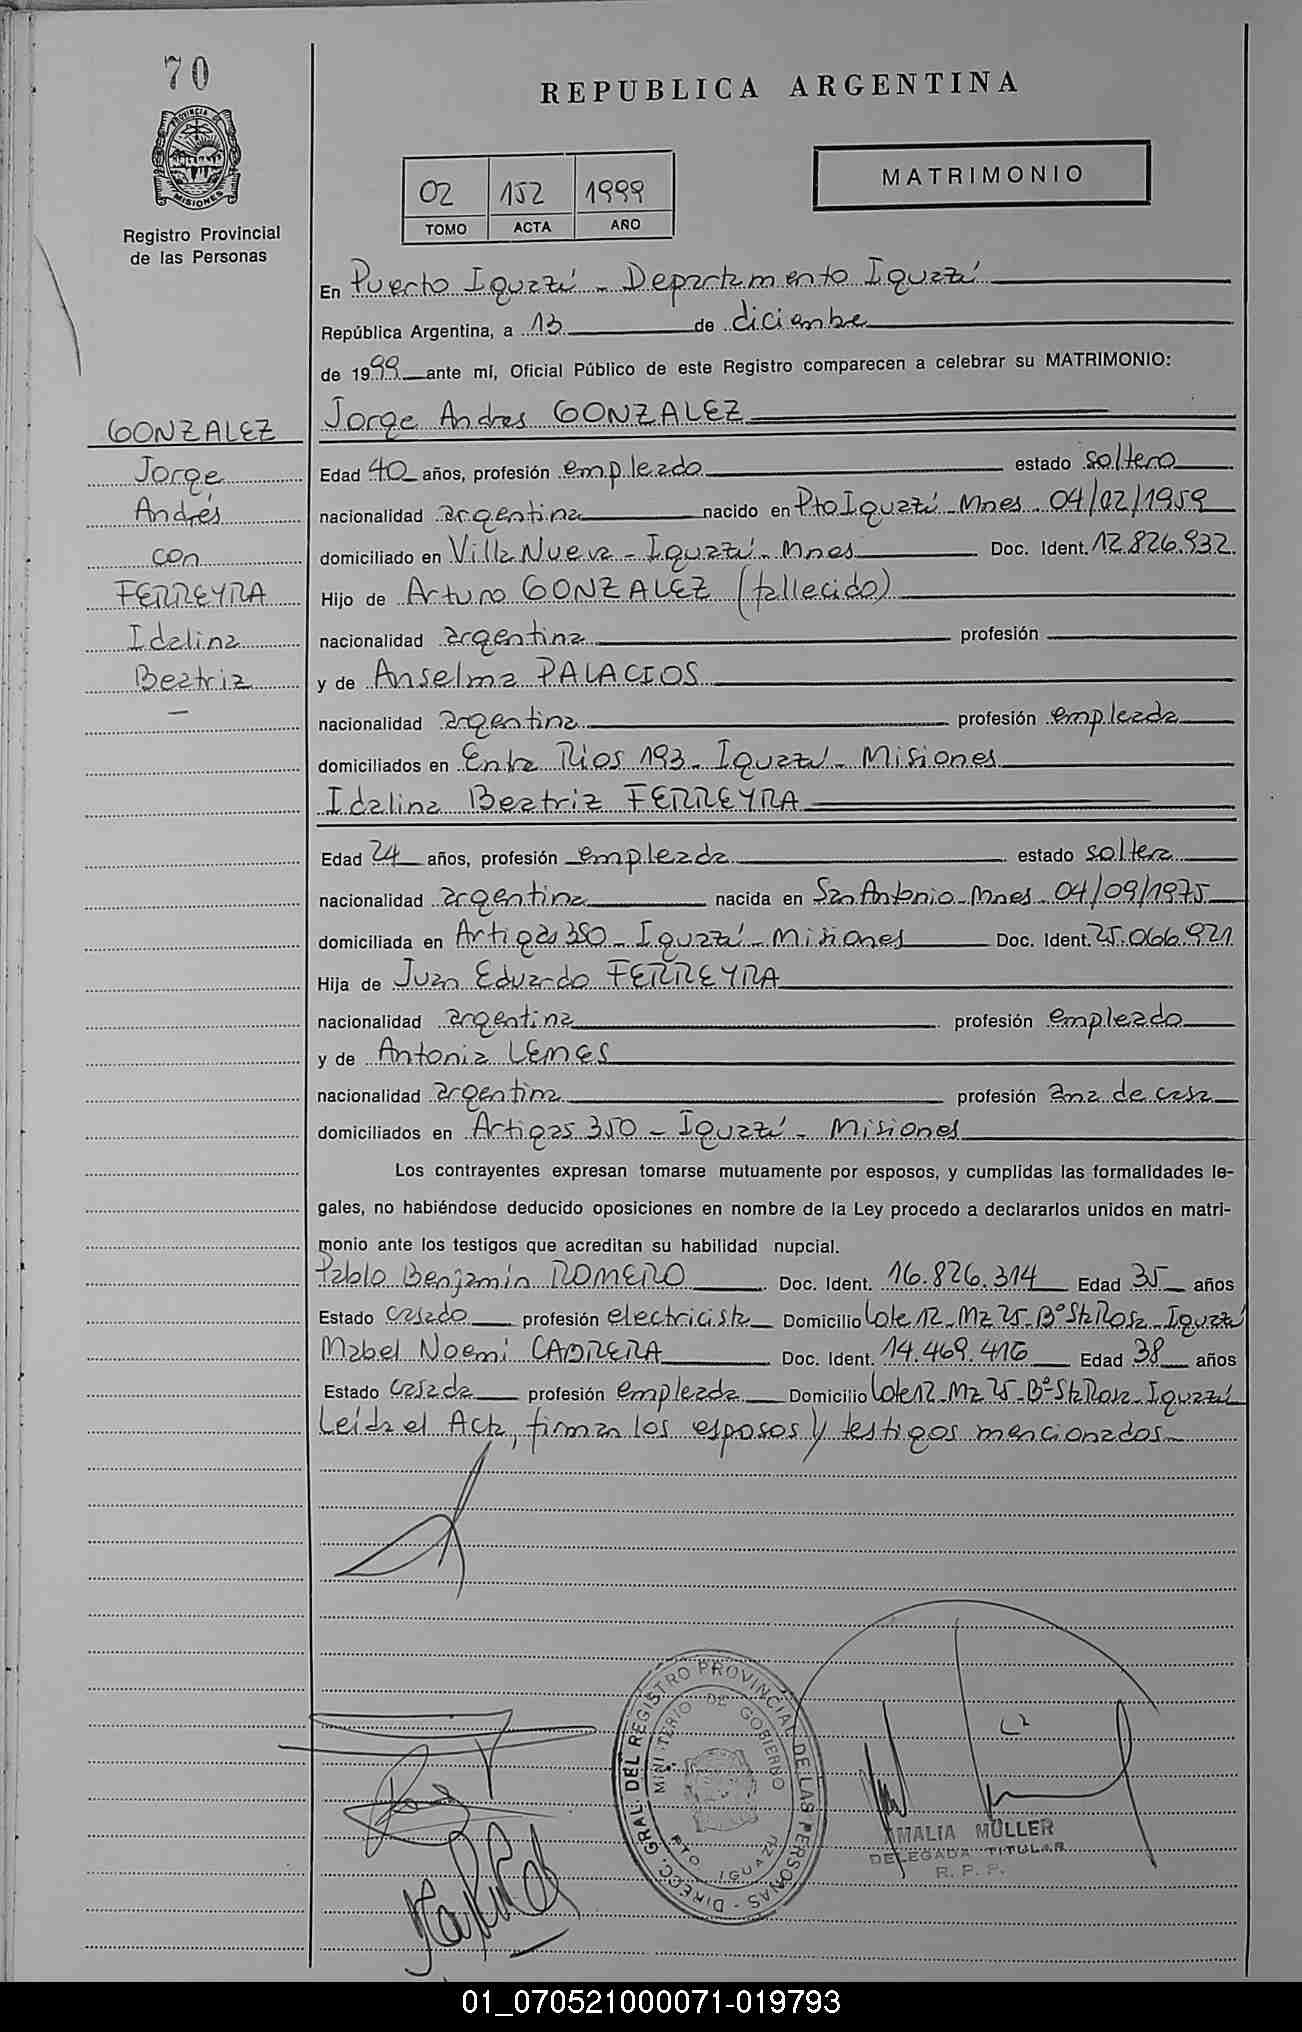 70
REPUBLICA ARGENTINA
PROVINCIA DE
MISIONES
MATRIMONIO
02 152 1999
TOMO ACTA AÑO
Registro Provincial
de las Personas
En Puerto Iguazú - Departamento Iguazú
República Argentina, a 13 de diciembre
de 1999 ante mí, Oficial Público de este Registro comparecen a celebrar su MATRIMONIO:
GONZALEZ
Jorge
Andrés
con
FERREYRA
Idalina
Beatriz
Jorge Andres GONZALEZ
Edad 40 años, profesión empleado estado soltero
nacionalidad argentina nacido en Pto Iguazú - Mnes - 04/02/1959
domiciliado en Villa Nueva - Iguazú - Mnes Doc. Ident. 12.826.932
Hijo de Arturo GONZALEZ (fallecido)
nacionalidad argentina profesión
y de Anselma PALACIOS
nacionalidad argentina profesión empleada
domiciliados en Entre Rios 193 - Iguazú - Misiones
Idalina Beatriz FERREYRA
Edad 24 años, profesión empleada estado soltera
nacionalidad argentina nacida en San Antonio - Mnes - 04/09/1975
domiciliada en Artigas 350 - Iguazú - Misiones Doc. Ident. 25.066.921
Hija de Juan Eduardo FERREYRA
nacionalidad argentina profesión empleado
y de Antonia LEMES
nacionalidad argentina profesión ama de casa
domiciliados en Artigas 350 - Iguazú - Misiones
Los contrayentes expresan tomarse mutuamente por esposos, y cumplidas las formalidades le-
gales, no habiéndose deducido oposiciones en nombre de la Ley procedo a declararlos unidos en matri-
monio ante los testigos que acreditan su habilidad nupcial.
Pablo Benjamín ROMERO Doc. Ident. 16.826.314 Edad 35 años
Estado casado profesión electricista Domicilio Lote 12 - Mz 25 - Bº Sta Rosa - Iguazú
Mabel Noemi CABRERA Doc. Ident. 14.469.416 Edad 38 años
Estado casada profesión empleada Domicilio Lote 12 - Mz 25 - Bº Sta Rosa - Iguazú
Leída el Acta, firman los esposos y testigos mencionados
DIRECC. GRAL. DEL REGISTRO PROVINCIAL DE LAS PERSONAS
MINISTERIO DE GOBIERNO
PTO IGUAZU
AMALIA MÜLLER
DELEGADA TITULAR
R. P. P.
01_070521000071-019793